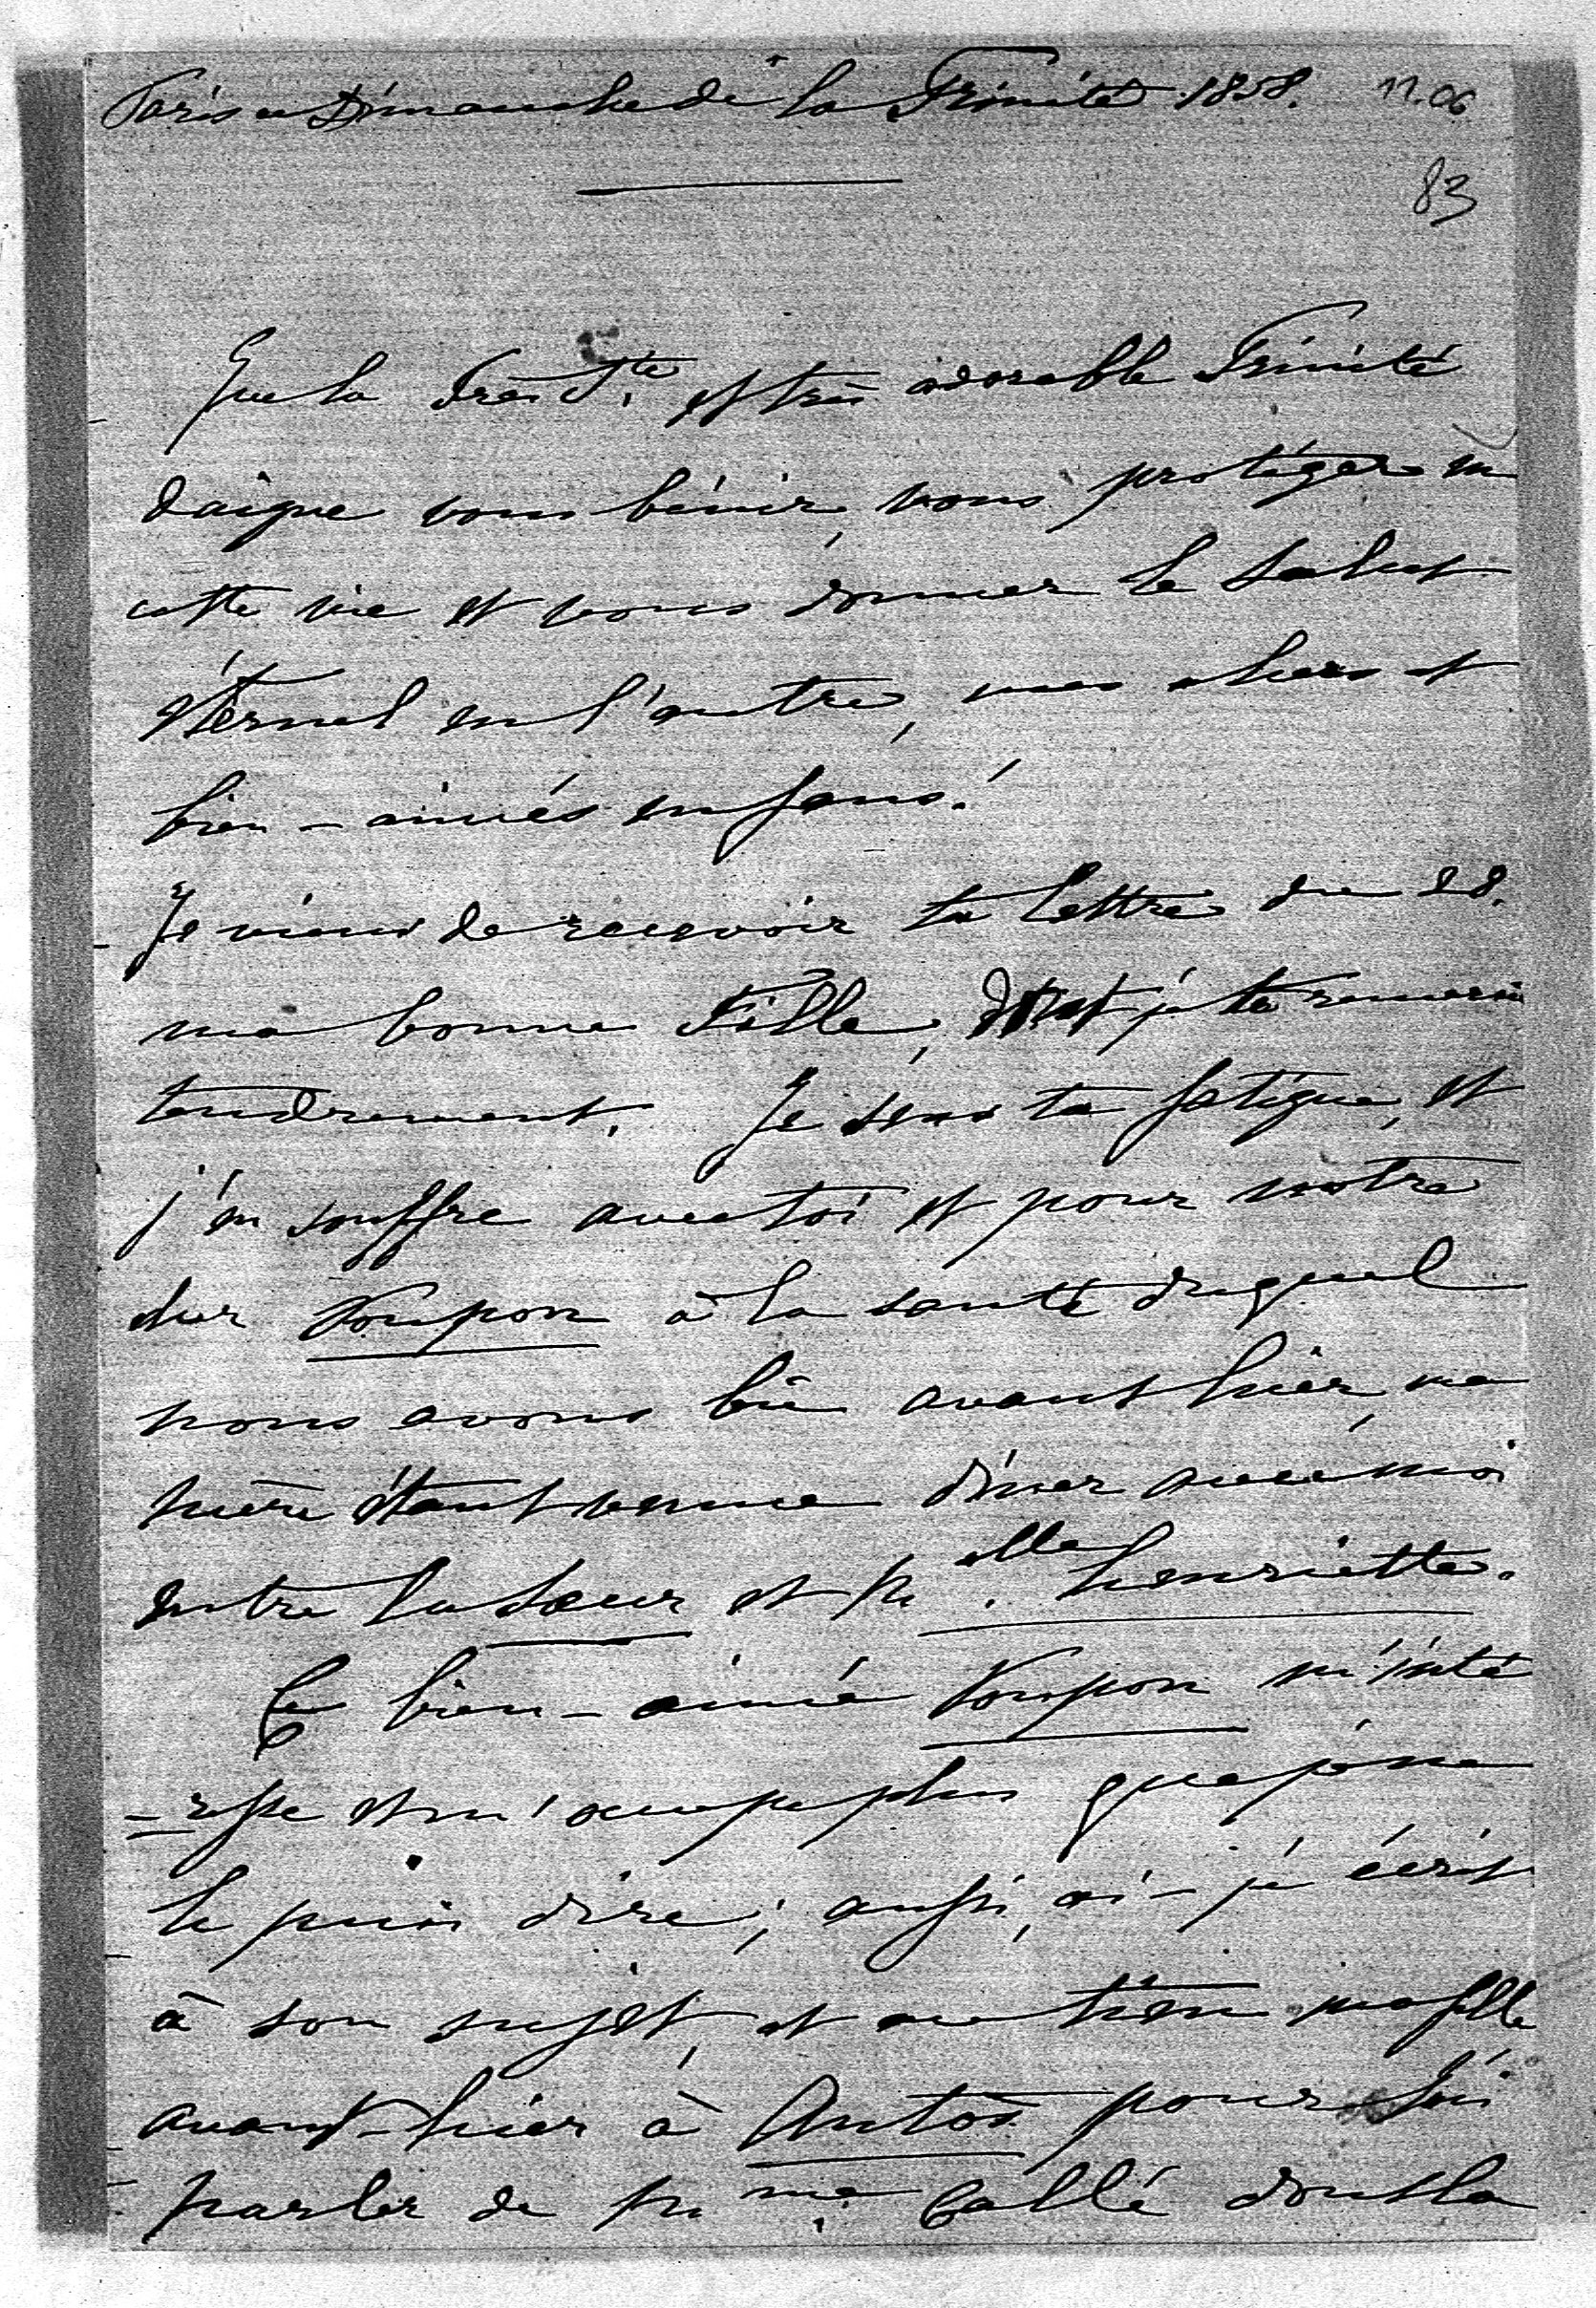 Paris ce Dimanche de la Trinité 1858. 11.06
83
Que la très Ste. et très adorable Trinité
daigne vous bénir, vous protéger en
cette vie et vous donner le salut
éternel en l'autre, mes chers et
bien-aimés enfans!
Je viens de recevoir ta lettre du 28.
ma bonne Fille, dont je te remercie
tendrement. Je sens ta fatigue, et
j'en souffre avec toi et pour notre
cher Poupon à la santé duquel
nous avons bu avant hier, ma
mère étant venue dîner avec moi
entre la sœur et Melle. henriette.
Ce bien-aimé Poupon m'inté
=resse et m'occupe plus que je ne
le puis dire; aussi, ai-je écrit
à son sujet, et au tien ma fille
avant-hier à Antos pour lui
parler de Mme. Callé dont la